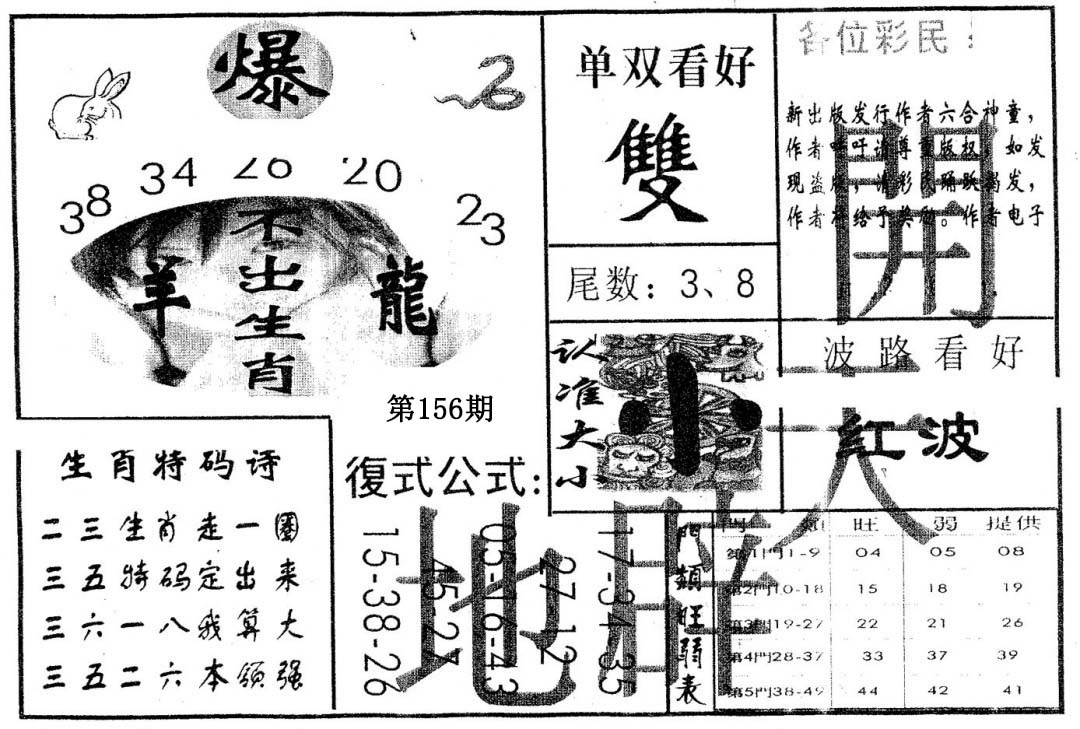 爆
38 34 26 20 23
不出生肖
羊
龍
第156期
单双看好
雙
尾数：3、8
认准大小
小
各位彩民：
新出版发行作者六合神童，
作者呼吁请尊重版权，如发
现盗版，请彩民踊跃揭发，
作者将给予奖励。作者电子
開
波路看好
红波
生肖特码诗
二三生肖走一圈
三五特码定出来
三六一八我算大
三五二六本领强
復式公式：
15-38-26
45-27
05-16-43
27-12
17-34-35
天
地
門類旺弱表
門類 旺 弱 提供
第1門1-9 04 05 08
第2門10-18 15 18 19
第3門19-27 22 21 26
第4門28-37 33 37 39
第5門38-49 44 42 41